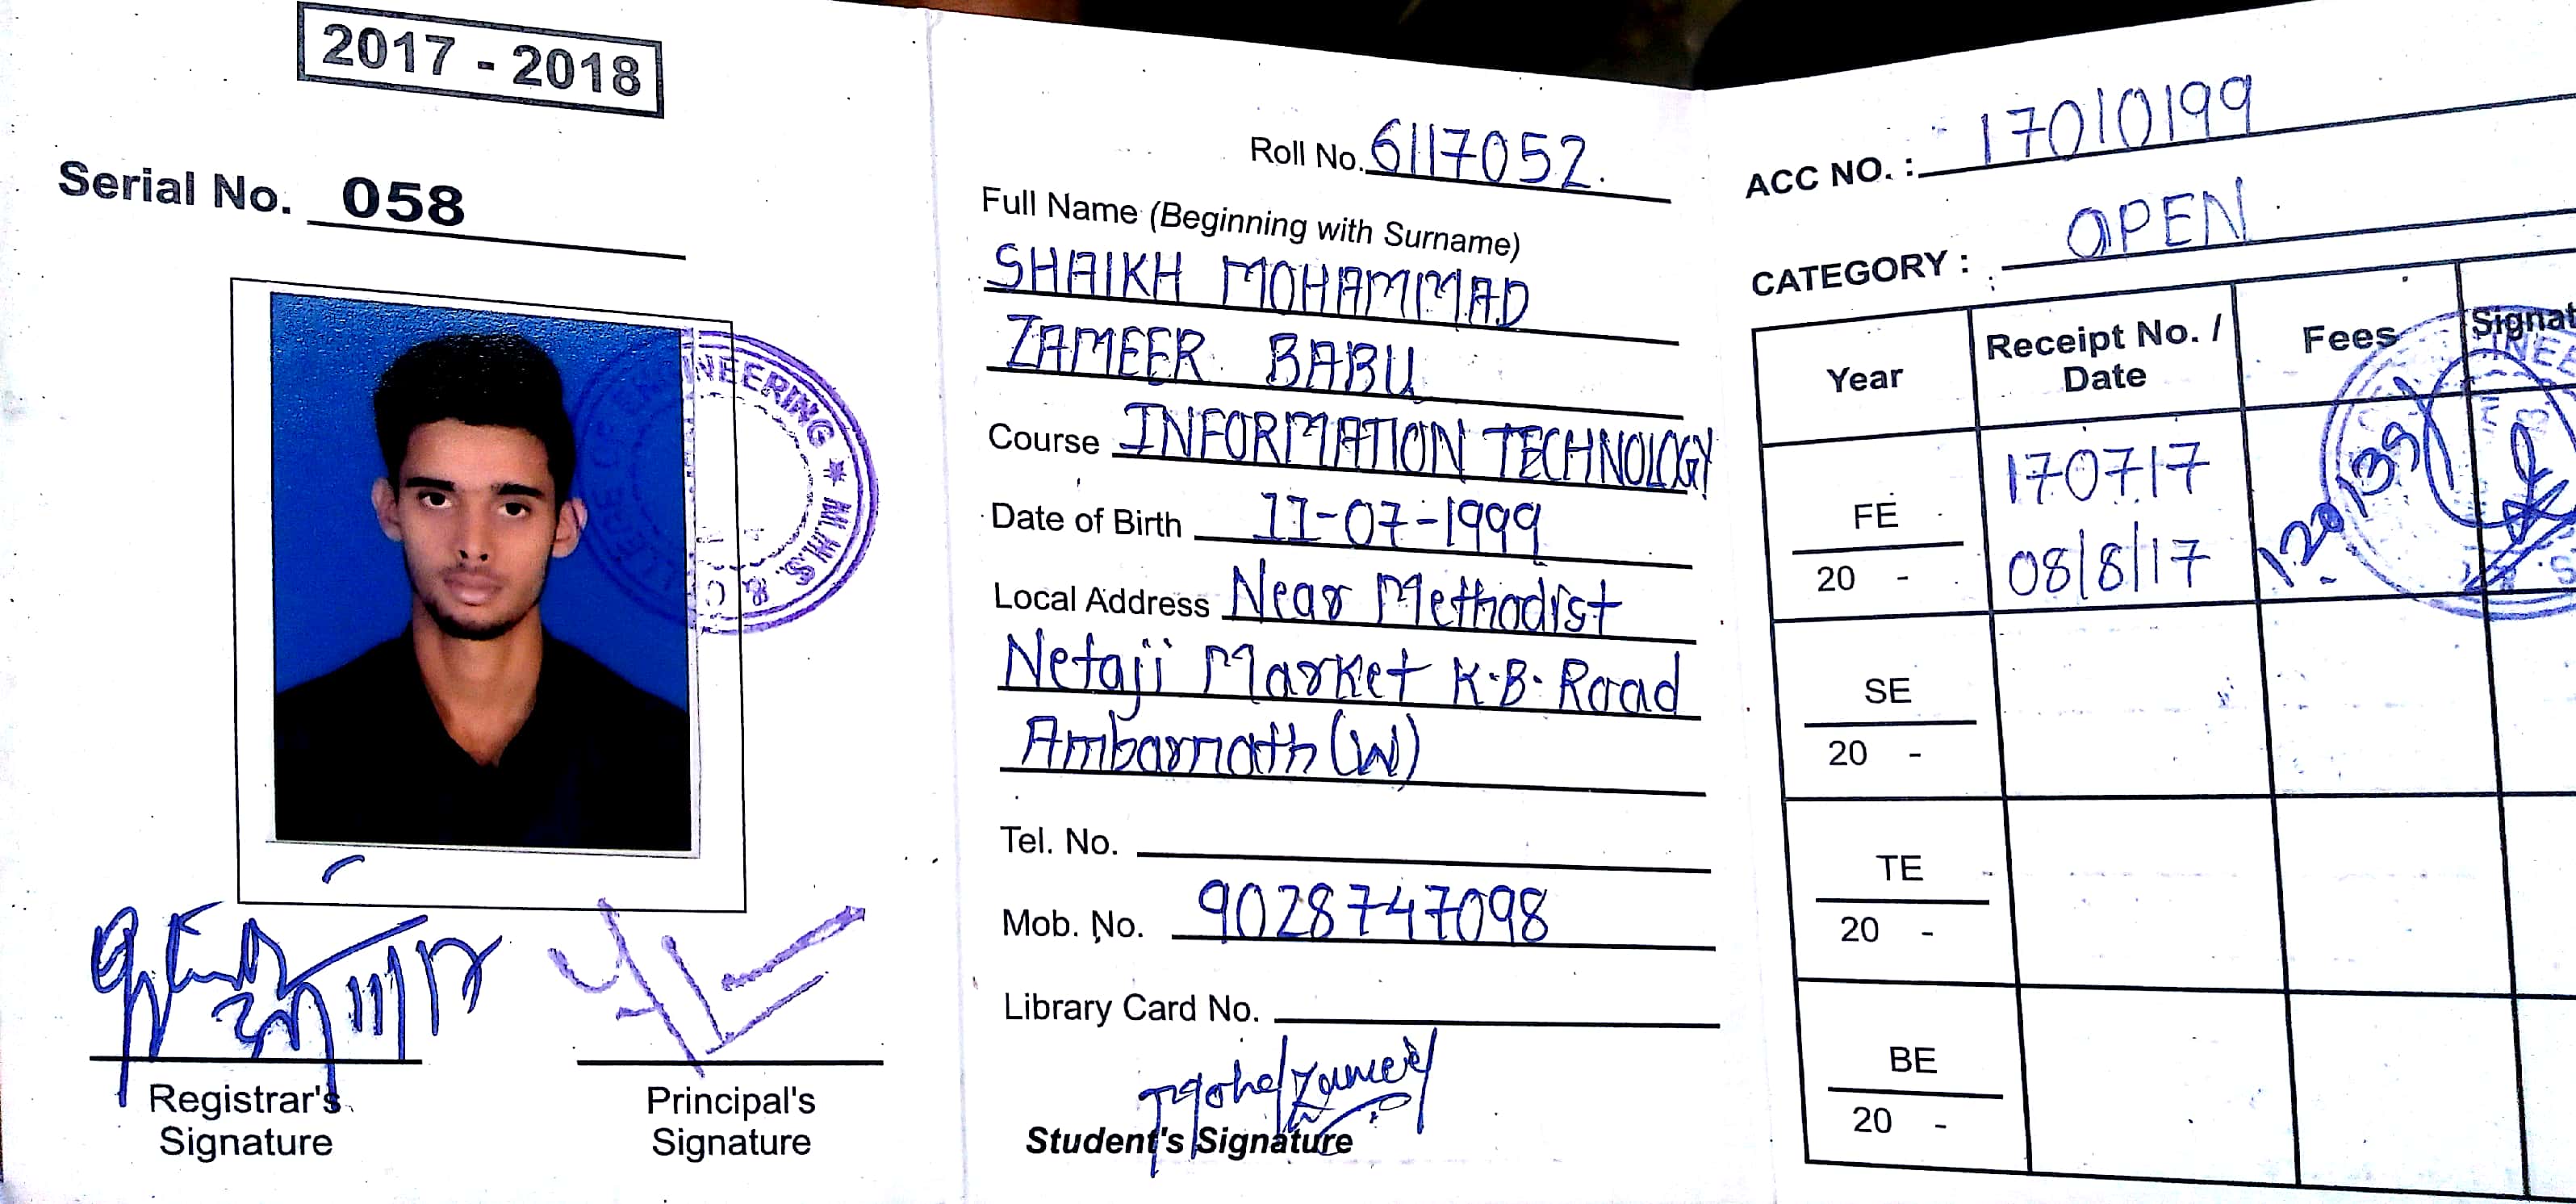 2017 - 2018
Serial No. 058
NEERING ★ M.H.S.S. & C
Registrar's
Signature
Principal's
Signature
Roll No. 6117052.
Full Name (Beginning with Surname)
SHAIKH MOHAMMAD
ZAMEER BABU
Course INFORMATION TECHNOLOGY
Date of Birth 11-07-1999
Local Address Near Methodist
Netaji Market K.B. Road
Ambarnath (W)
Tel. No.
Mob. No. 9028747098
Library Card No.
Student's Signature
ACC NO. : 17010199
CATEGORY : OPEN
Year Receipt No. / Date Fees Signat
FE
20 -
170717
08/8/17
SE
20 -
TE
20 -
BE
20 -